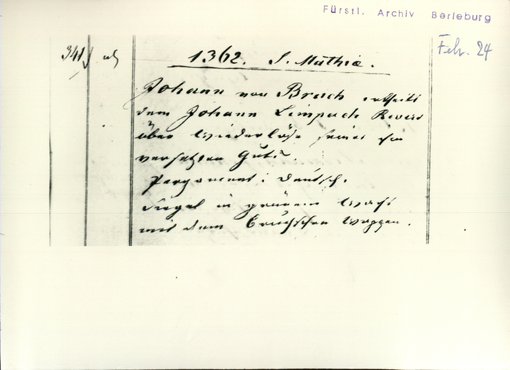 Fürstl. Archiv Berleburg
Febr. 24
341
1362. S. Mathiæ.
Johann von Bruch ertheilt
dem Johann Limpach Revers
über Wiederlöse seines ihm
versetzten Guts.
Pergament: Deutsch.
Siegel in grünem Wachs
mit dem Bruchschen Wappen.